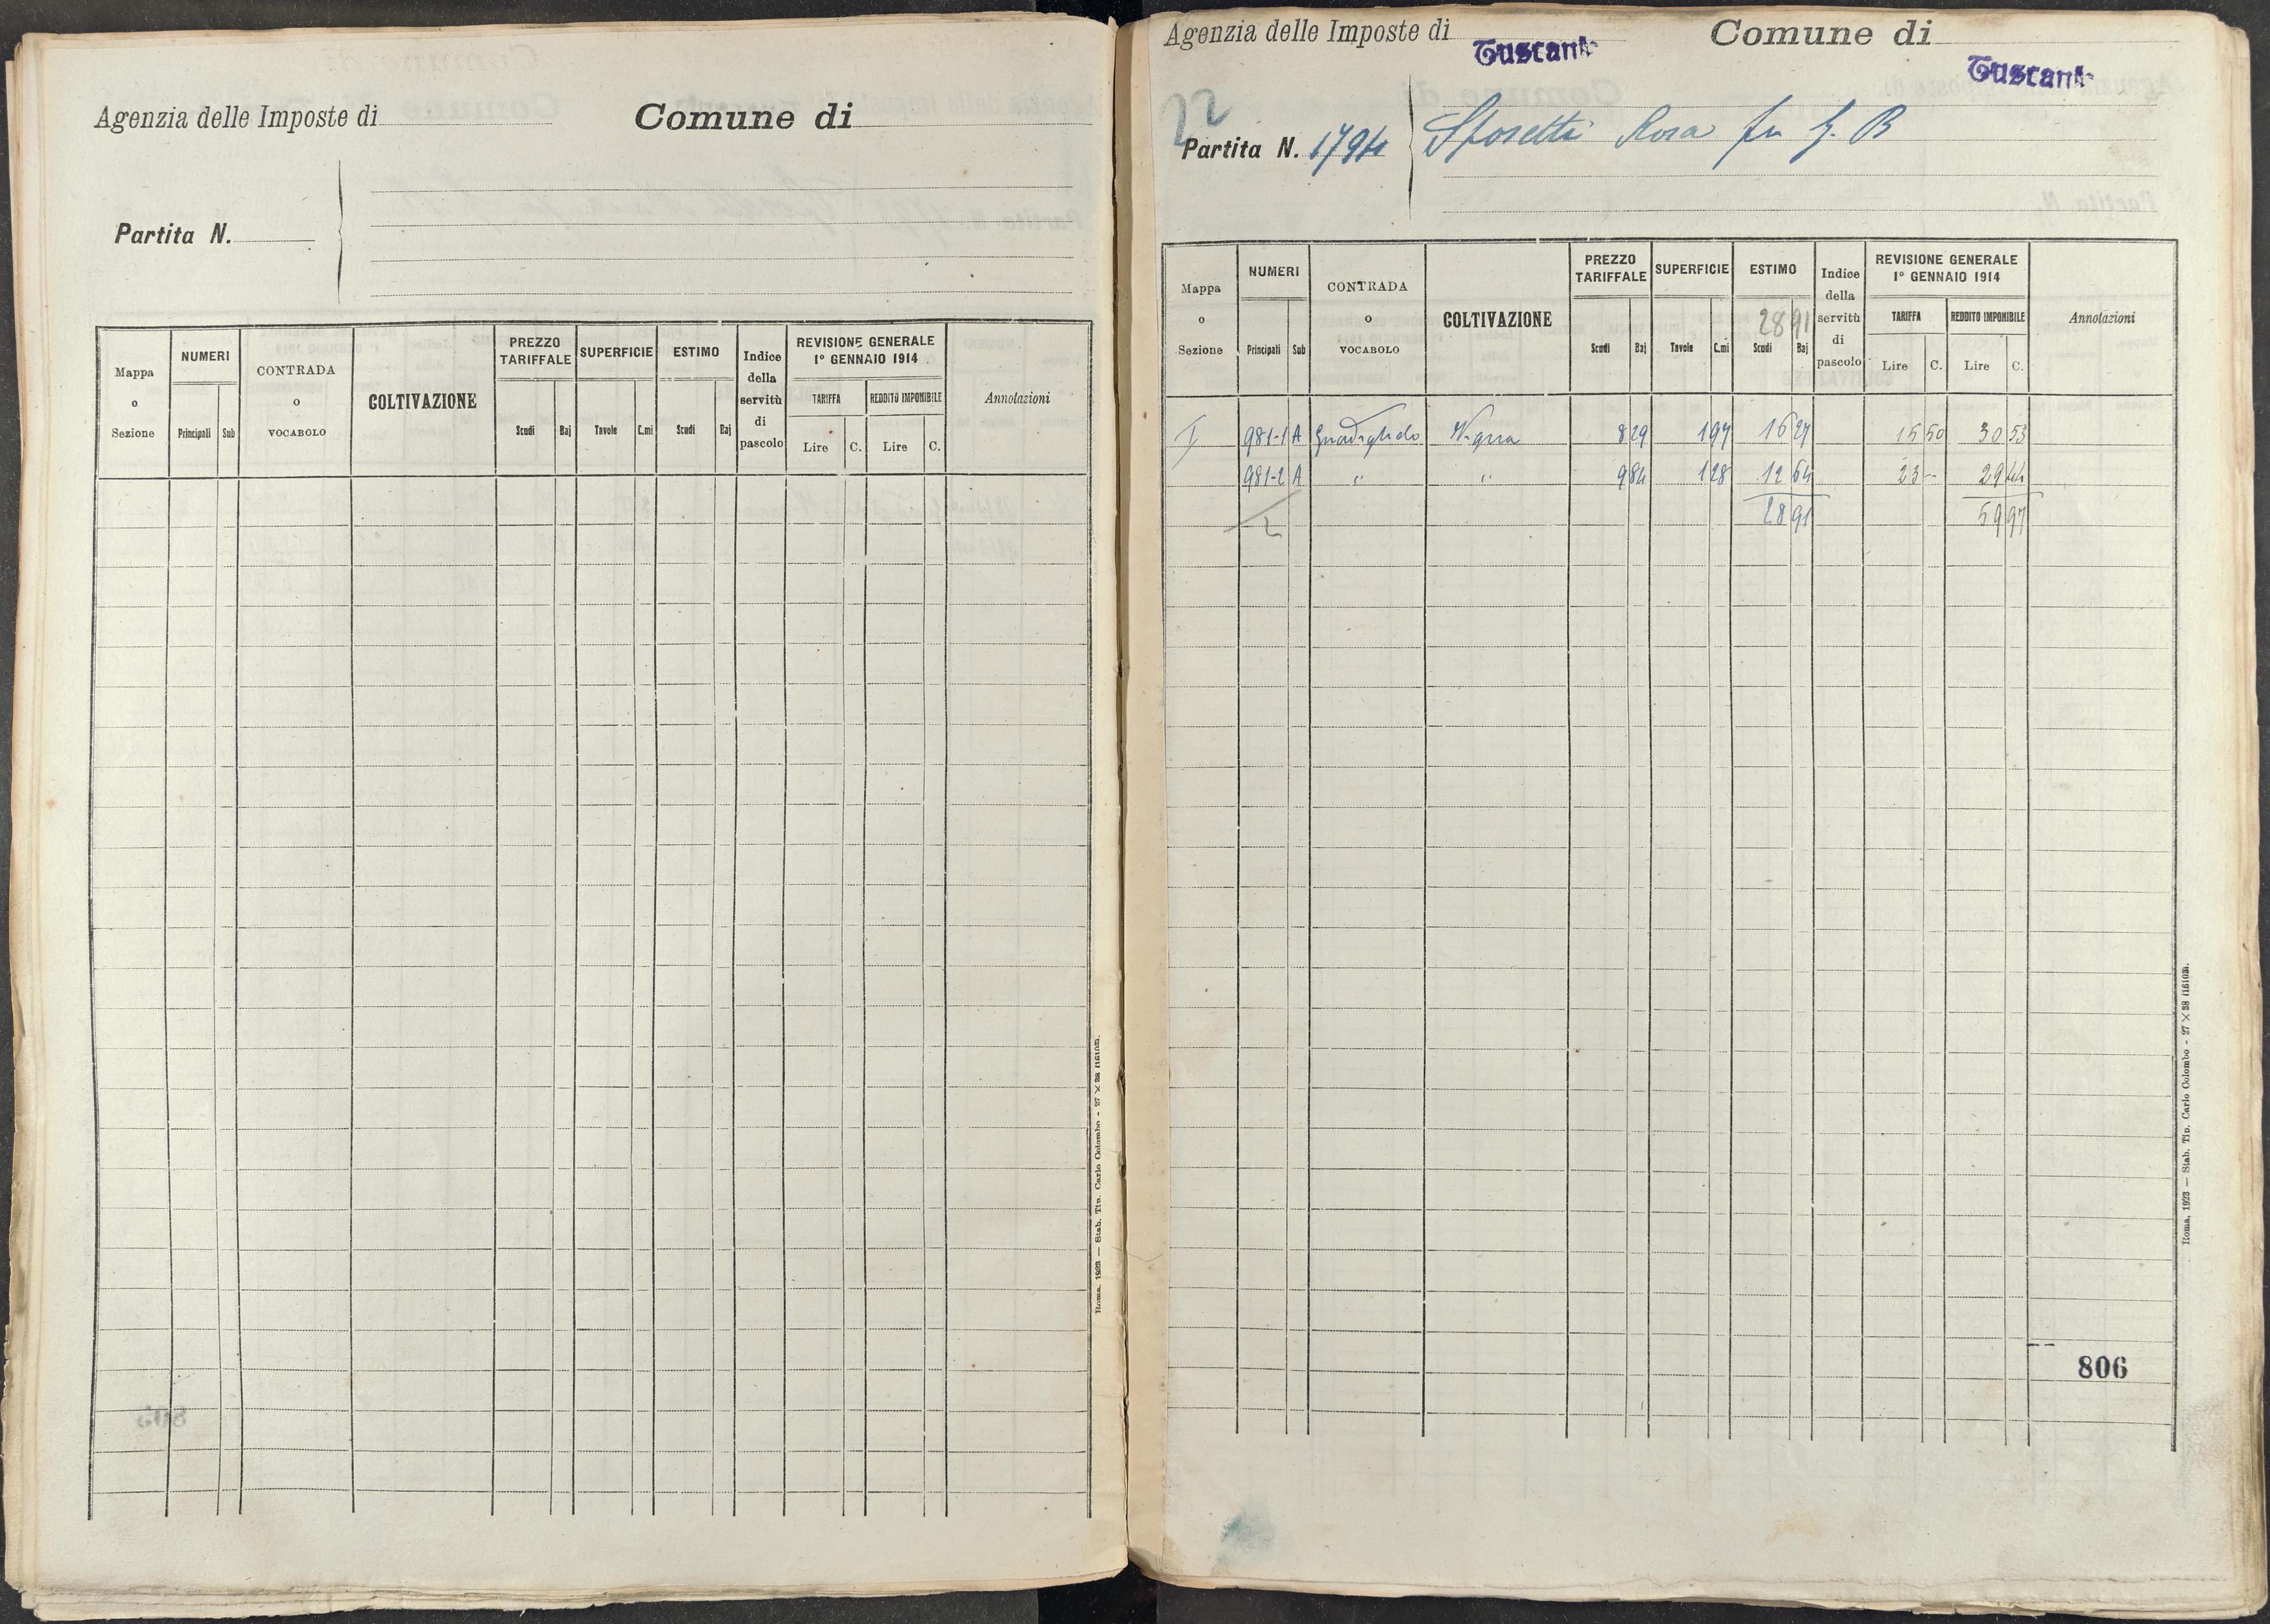 Agenzia delle Imposte di Comune di
Partita N.
Mappa o Sezione NUMERI Principali Sub CONTRADA o VOCABOLO COLTIVAZIONE PREZZO TARIFFALE Scudi Baj SUPERFICIE Tavole C.mi ESTIMO Scudi Baj Indice della servitù di pascolo REVISIONE GENERALE 1° GENNAIO 1914 TARIFFA Lire C. REDDITO IMPONIBILE Lire C. Annotazioni
Roma, 1923 — Stab. Tip. Carlo Colombo - 27 × 38 (1610).
Agenzia delle Imposte di Tuscania Comune di Tuscania
22
Partita N. 1794 Sposetti Rosa fu G. B
Mappa o Sezione NUMERI Principali Sub CONTRADA o VOCABOLO COLTIVAZIONE PREZZO TARIFFALE Scudi Baj SUPERFICIE Tavole C.mi ESTIMO 28 91 Scudi Baj Indice della servitù di pascolo REVISIONE GENERALE 1° GENNAIO 1914 TARIFFA Lire C. REDDITO IMPONIBILE Lire C. Annotazioni
I 981-1 A Vigna 8 29 1 97 16 27 15 50 30 53
981-2 A " " 9 84 1 28 12 64 23 - 29 44
2 28 91 59 97
806
Roma, 1923 — Stab. Tip. Carlo Colombo - 27 × 38 (1610).